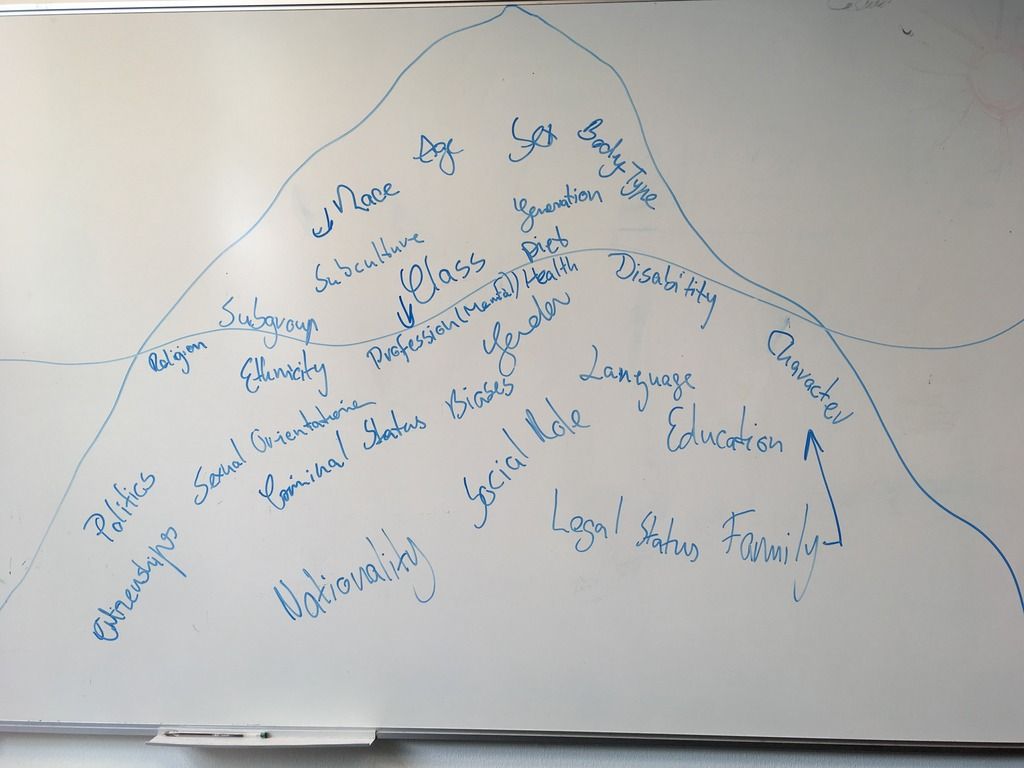 Age
Sex
Body Type
Race
Generation
Subculture
Diet
Class
Subgroup
(Mental) Health
Disability
Profession
Religion
Ethnicity
Gender
Character
Language
Sexual Orientation
Biases
Criminal Status
Education
Social Role
Politics
Legal Status
Family
Citizenships
Nationality